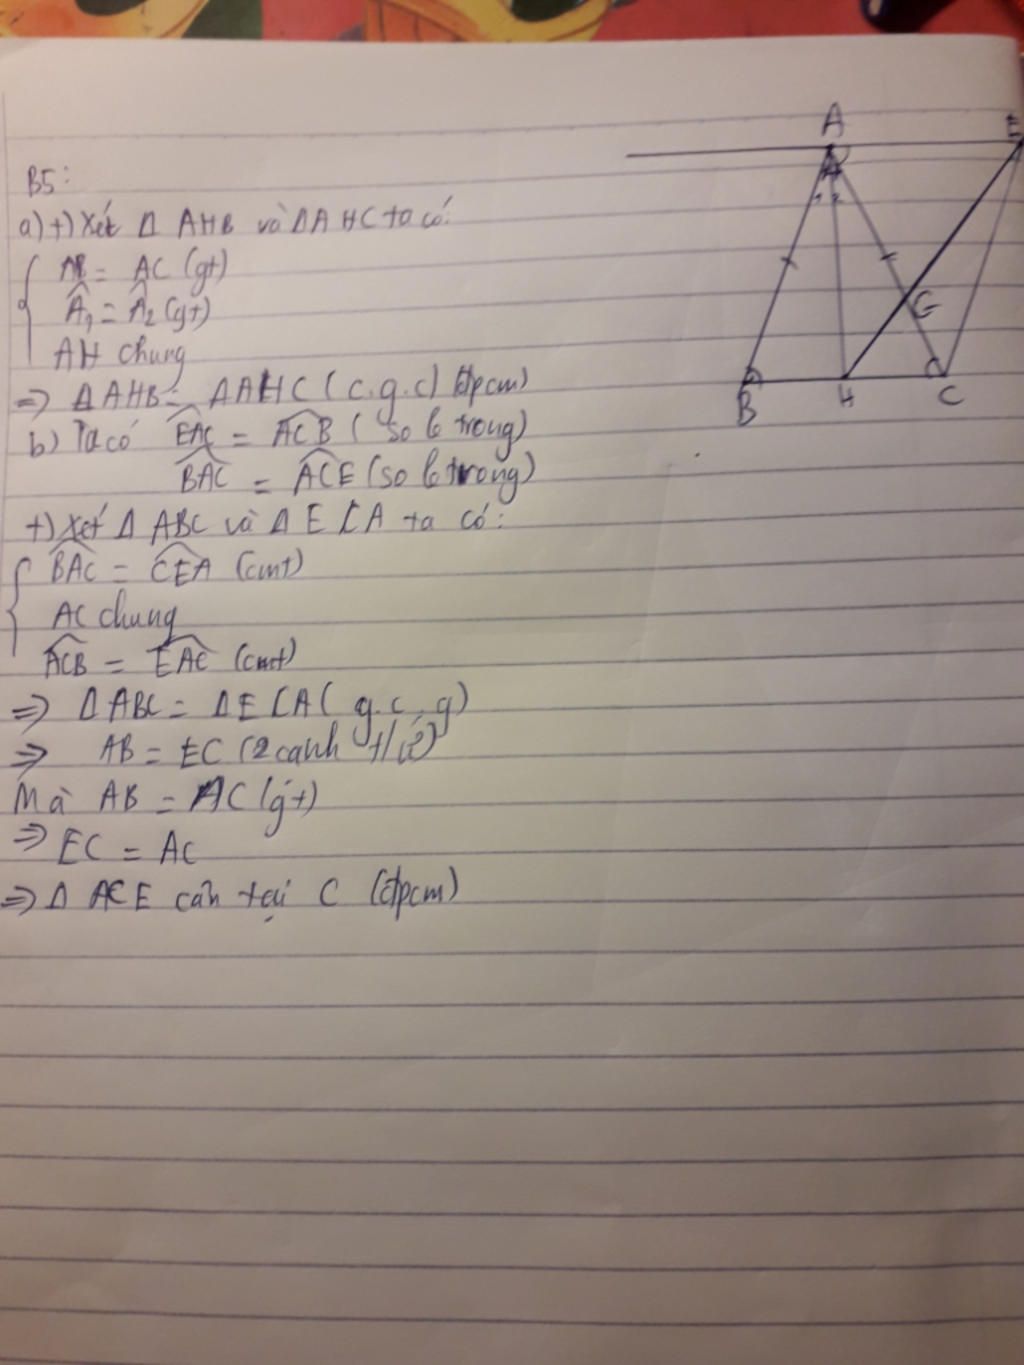 B5:
a) +) Xét Δ AHB và ΔAHC ta có:
AB = AC (gt)
Â₁ = Â₂ (gt)
AH chung
=> ΔAHB = ΔAHC (c.g.c) (đpcm)
b) Ta có EAC = ACB (so le trong)
BAC = ACE (so le trong)
+) Xét Δ ABC và Δ ECA ta có:
BAC = CEA (cmt)
AC chung
ACB = EAC (cmt)
=> Δ ABC = Δ ECA (g.c.g)
=> AB = EC (2 cạnh t/ứ)
Mà AB = AC (gt)
=> EC = AC
=> Δ ACE cân tại C (đpcm)
A
E
1 2
G
B
H
C